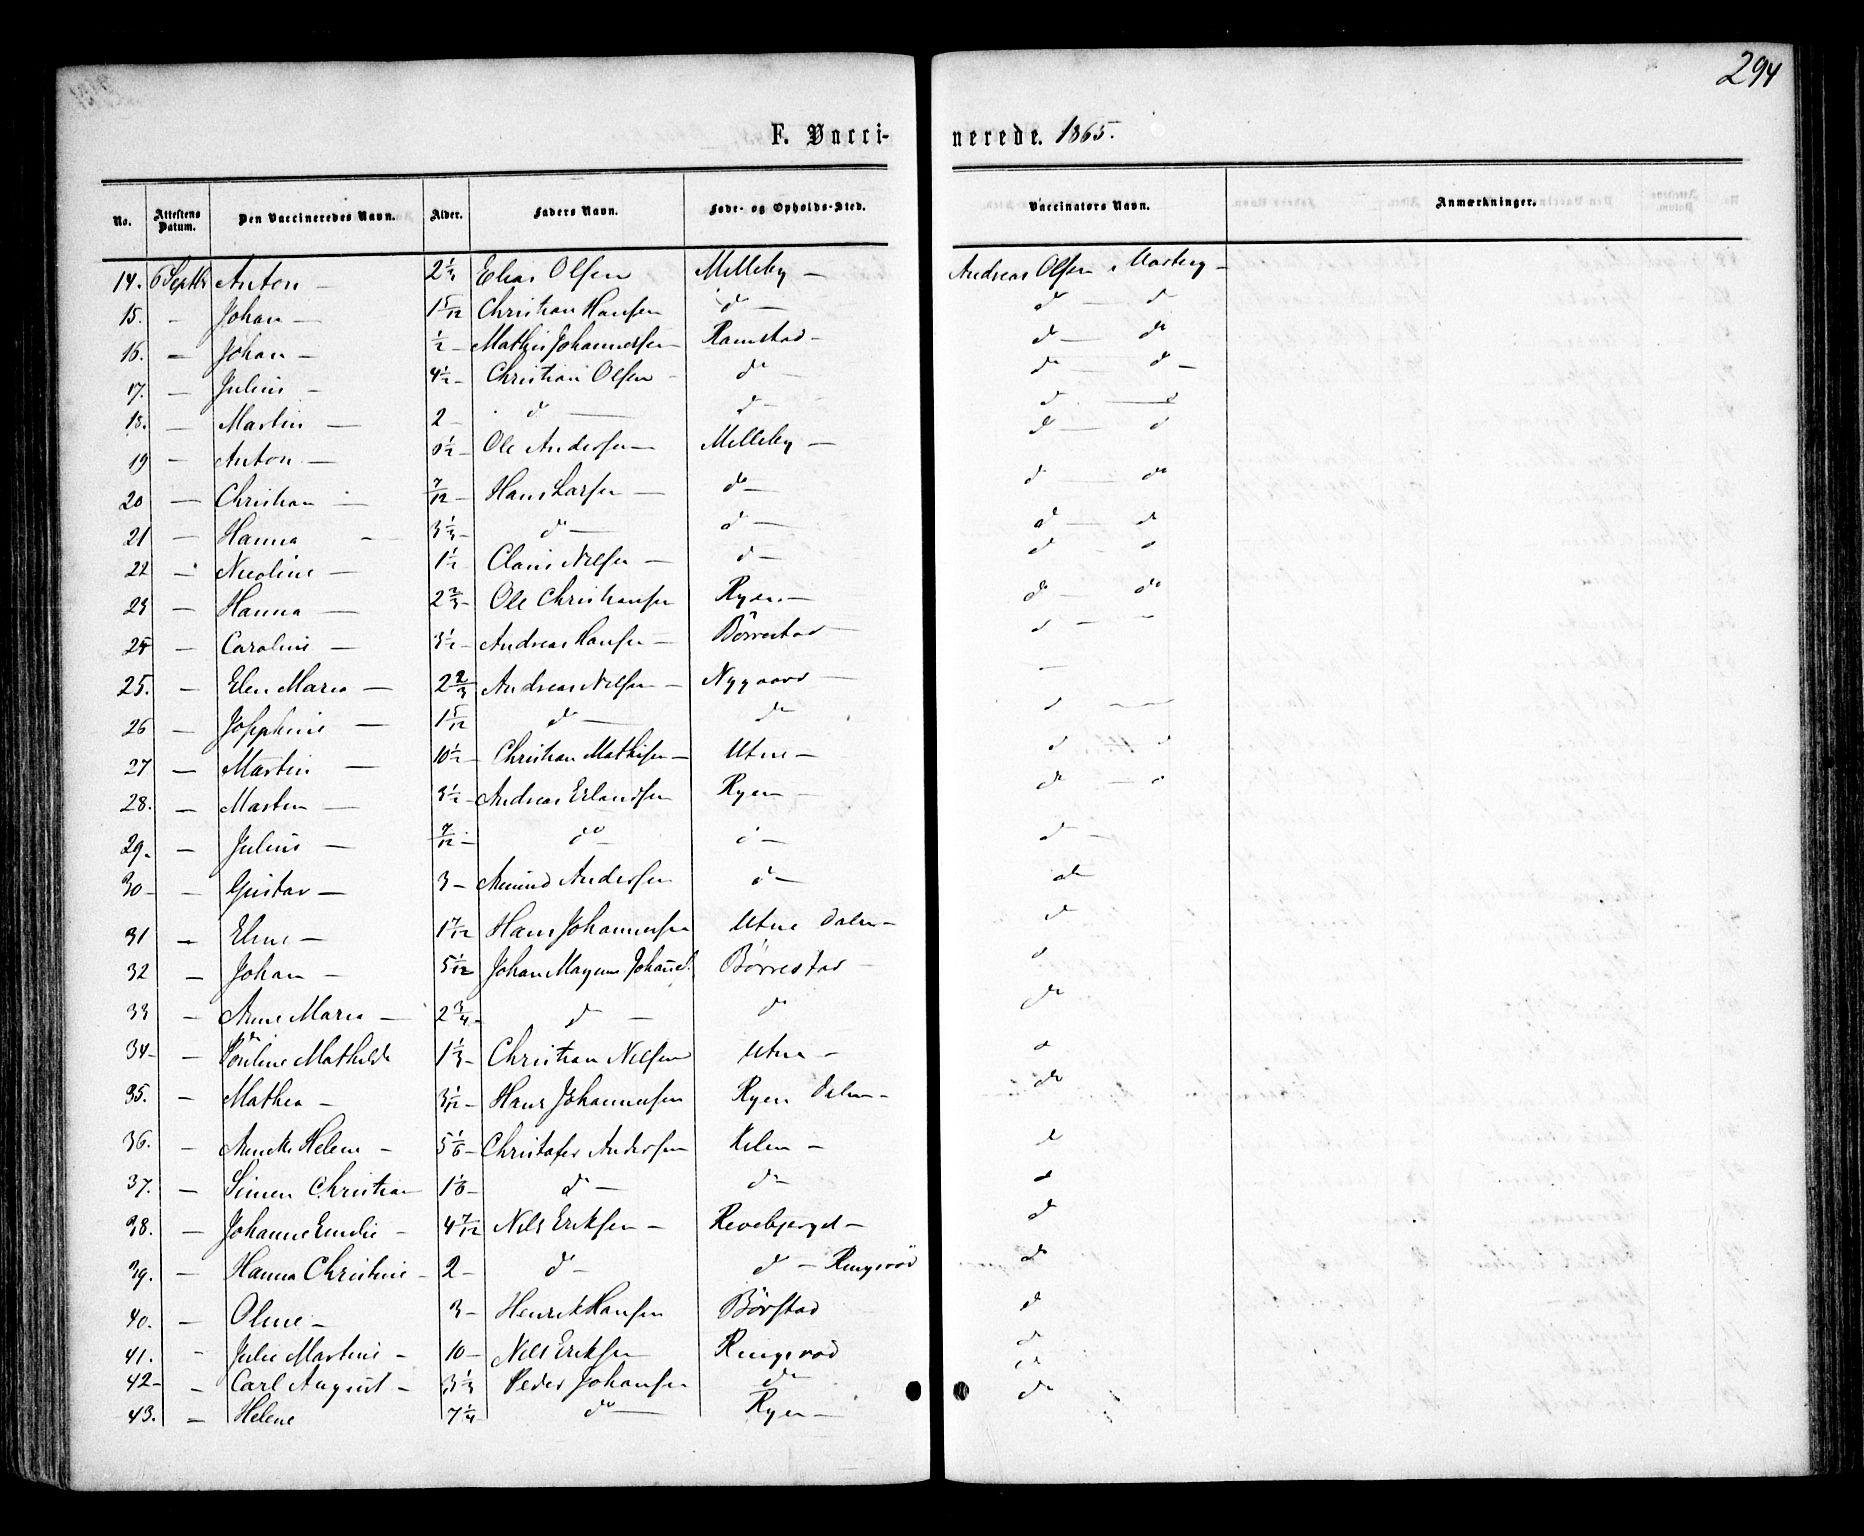 294
F. Vaccinerede. 1865.
No. Attestens Datum. Den Vaccineredes Navn. Alder. Faders Navn. Føde- og Opholds-Sted. Vaccinators Navn. Anmærkninger.
14. 6 Septbr Anton — 2 1/3 Elias Olsen Melleby — Andreas Olsen
15. - Johan — 1 5/12 Christian Hansen do — do — do
16. — Johan — 1/2 — Mathis Johannessen — Ramstad — do — do
17. — Julius — 4 1/2 — Christian Olsen — do — do — do —
18. — Martin — 2 — do — do — do — do
19 — Anton — Ole Andersen — Melleby — do — do
20 — Christian — 7/12 — Hans Larsen — do — do — do
21 — Hanna — 3 1/3 — do — do — do — do
22 — Nicoline — 1 1/2 Claus Nilsen — do — do — do
23 — Hanna — 2 2/3 — Ole Christiansen Ryen — do — do
24 — Caroline — 3 1/2 — Andreas Hansen — Børrestad — do — —
25. — Elen Maria — 2 2/3 Andreas Nilsen — Nygaard — —
26 — Josephine — 1 5/12 do — do do — —
27 — Martin — 10 1/2 — Christian Mathisen — Utne — do — do
28. — Marten — 3 1/2 — Andreas Erlandsen Ryen — do — do
29. — Julius — 7/12 — do — do — do —
30 — — Gustav — 3 — Amund Andersen do — do
31 — Eline — 1 7/12 Hans Johannesen Utne Dalen — do
32 — Johan — 5 1/12 Johan Magnus Johanes. Børrestad — do
33 — Anne Maria — 2 3/4 — do — do do
34 — — Pauline Mathilde 1 1/3 — Christian Nilsen Utne — do
35. — Mathea — 3 1/12 — Hans Johannesen Ryen Dalen — do
36. — Helene — 5 1/6 — Christofer Andersen — do
37. — Simen Christian 1 1/6 — do — do — do
38. — Johanne Emilie — 4 7/12 Nils Eriksen — Revebjerget — do
39. — Hanna Christine — 2 — do — do — Ringsrød do
40. — Oline — 3 — Henrik Hansen Børstad do
41. — Julie Martine — 10 — Nils Eriksen Ringsrød do
42 — — Carl August — 3 1/3 Peder Johansen do — do
43. — Helene 7 1/4 — do — Ryen — do